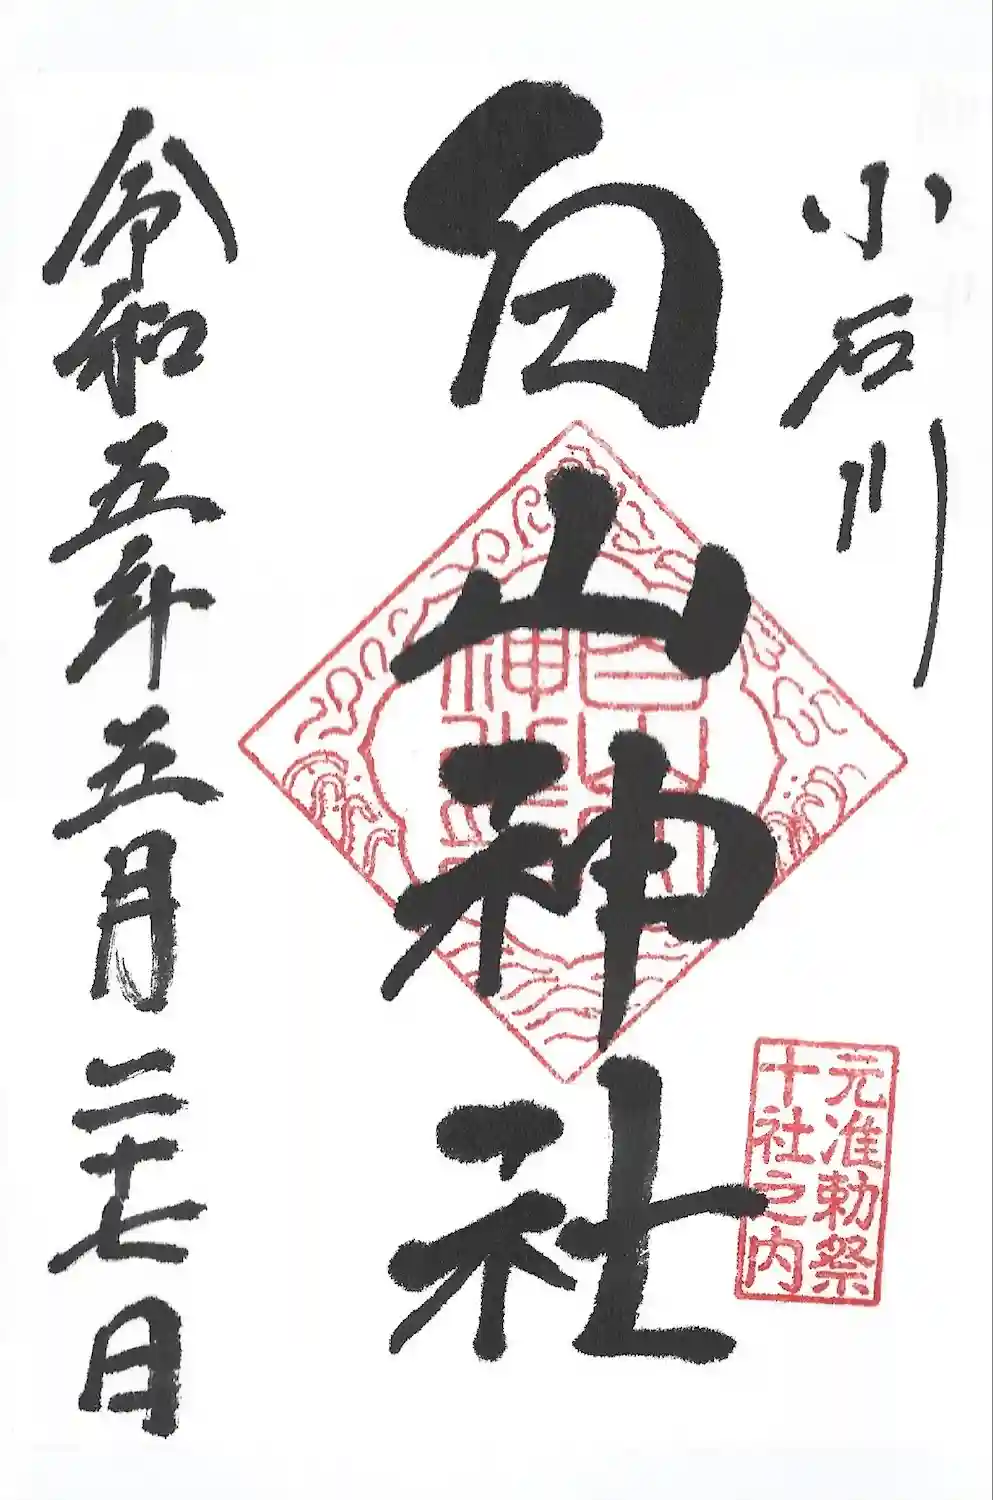 小石川
白山神社
元准勅祭
十社之内
令和五年五月二十七日